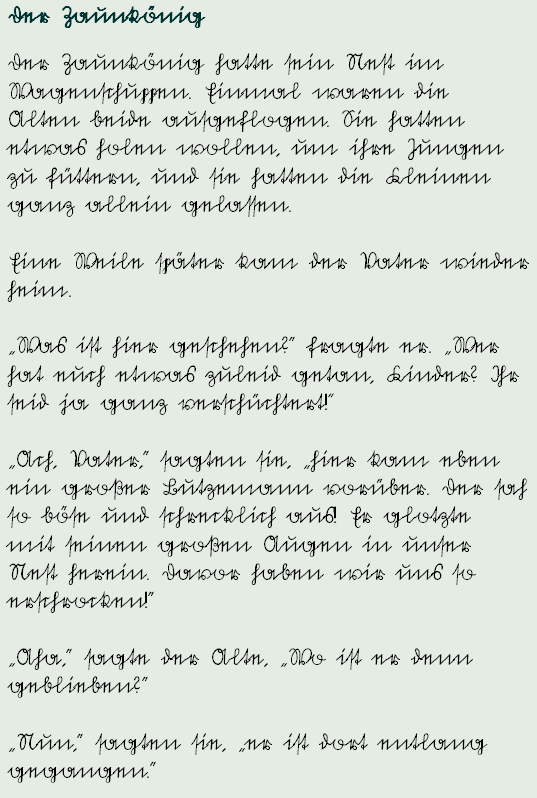 Der Zaunkönig
Der Zaunkönig hatte sein Nest im
Wagenschuppen. Einmal waren die
Alten beide ausgeflogen. Sie hatten
etwas holen wollen, um ihre Jungen
zu füttern, und sie hatten die Kleinen
ganz allein gelassen.
Eine Weile später kam der Vater wieder
heim.
„Was ist hier geschehen?” fragte er. „Wer
hat euch etwas zuleid getan, Kinder? Ihr
seid ja ganz verschüchtert!”
„Ach, Vater,” sagten sie, „hier kam eben
ein großer Butzemann vorüber. Der sah
so böse und schrecklich aus! Er glotzte
mit seinen großen Augen in unser
Nest herein. Davor haben wir uns so
erschrocken!”
„Aha,” sagte der Alte, „Wo ist er denn
geblieben?”
„Nun,” sagten sie, „er ist dort entlang
gegangen.”